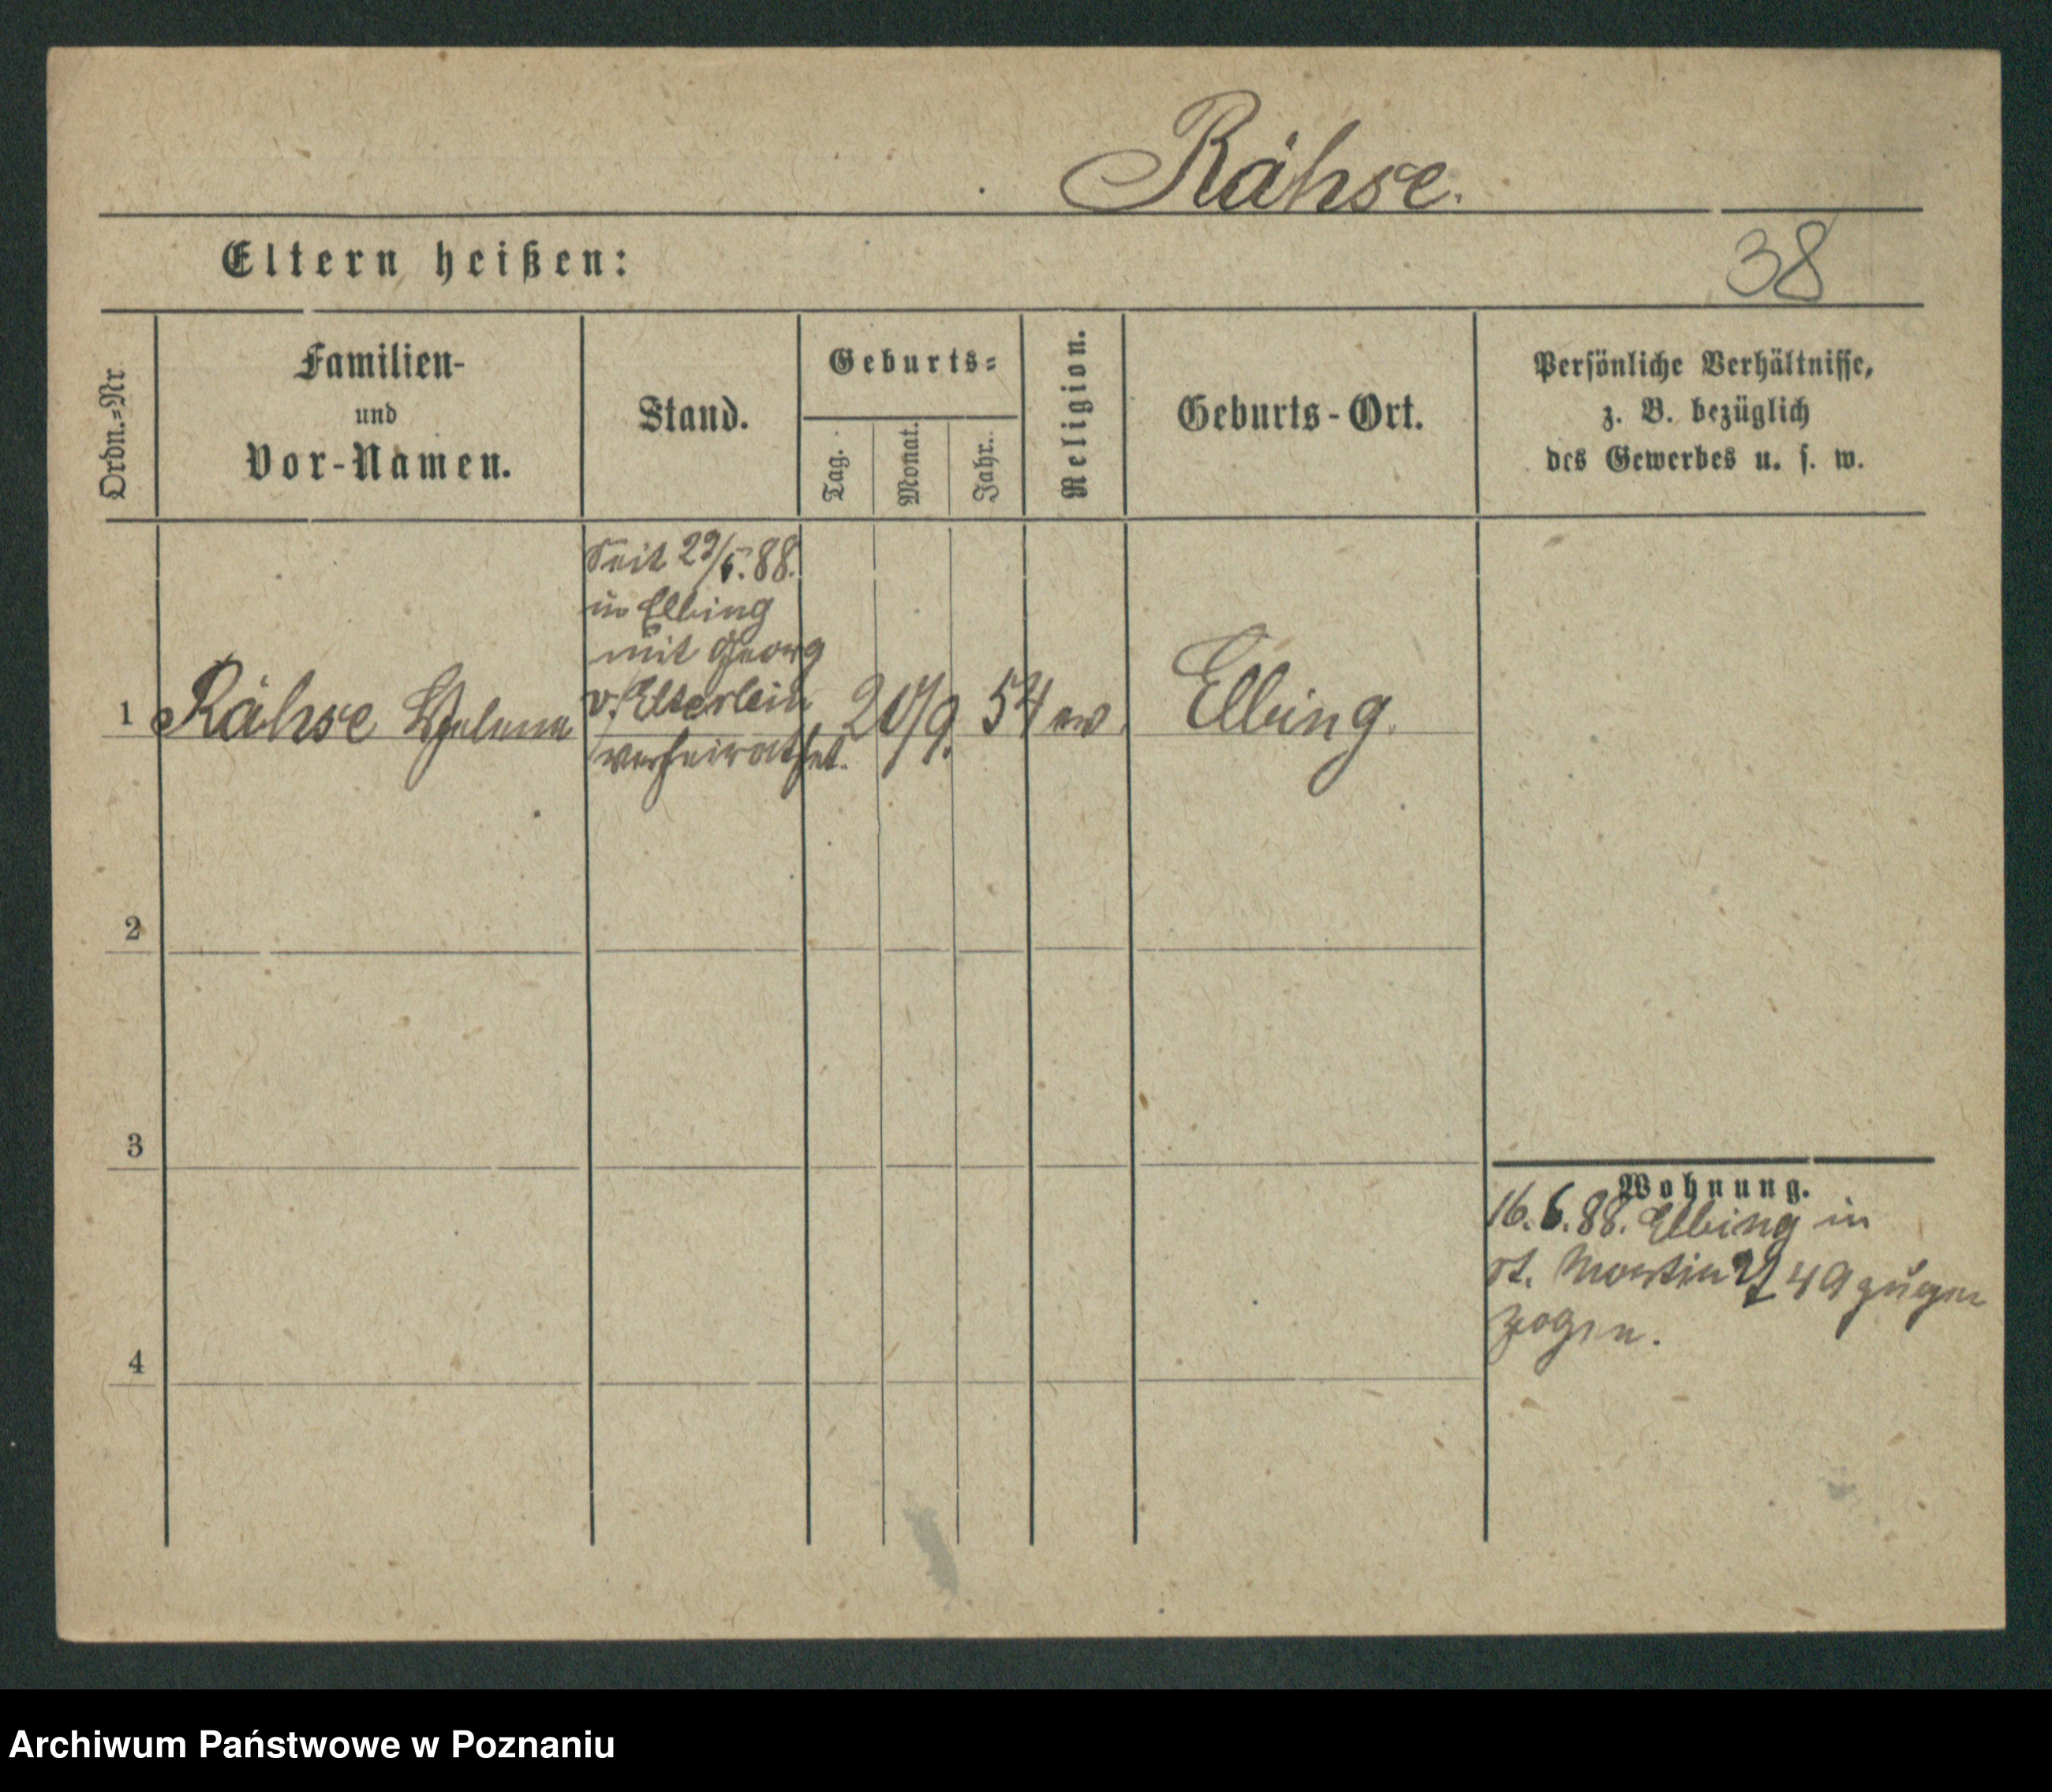 Rähse.
Eltern heißen:
38
Ordn.=Nr
Familien-
und
Vor-Namen.
Stand.
Geburts=
Tag.
Monat.
Jahr.
Religion.
Geburts-Ort.
Persönliche Verhältnisse,
z. B. bezüglich
des Gewerbes u. s. w.
Seit 29/5. 88.
in Elbing
mit Georg
v. Elterlein
verheirathet.
1 Rähse Helene 20/9. 54 ev. Elbing.
2
3
4
Wohnung.
16. 6. 88. Elbing in
St. Martin 49 zuge
zogen.
Archiwum Państwowe w Poznaniu